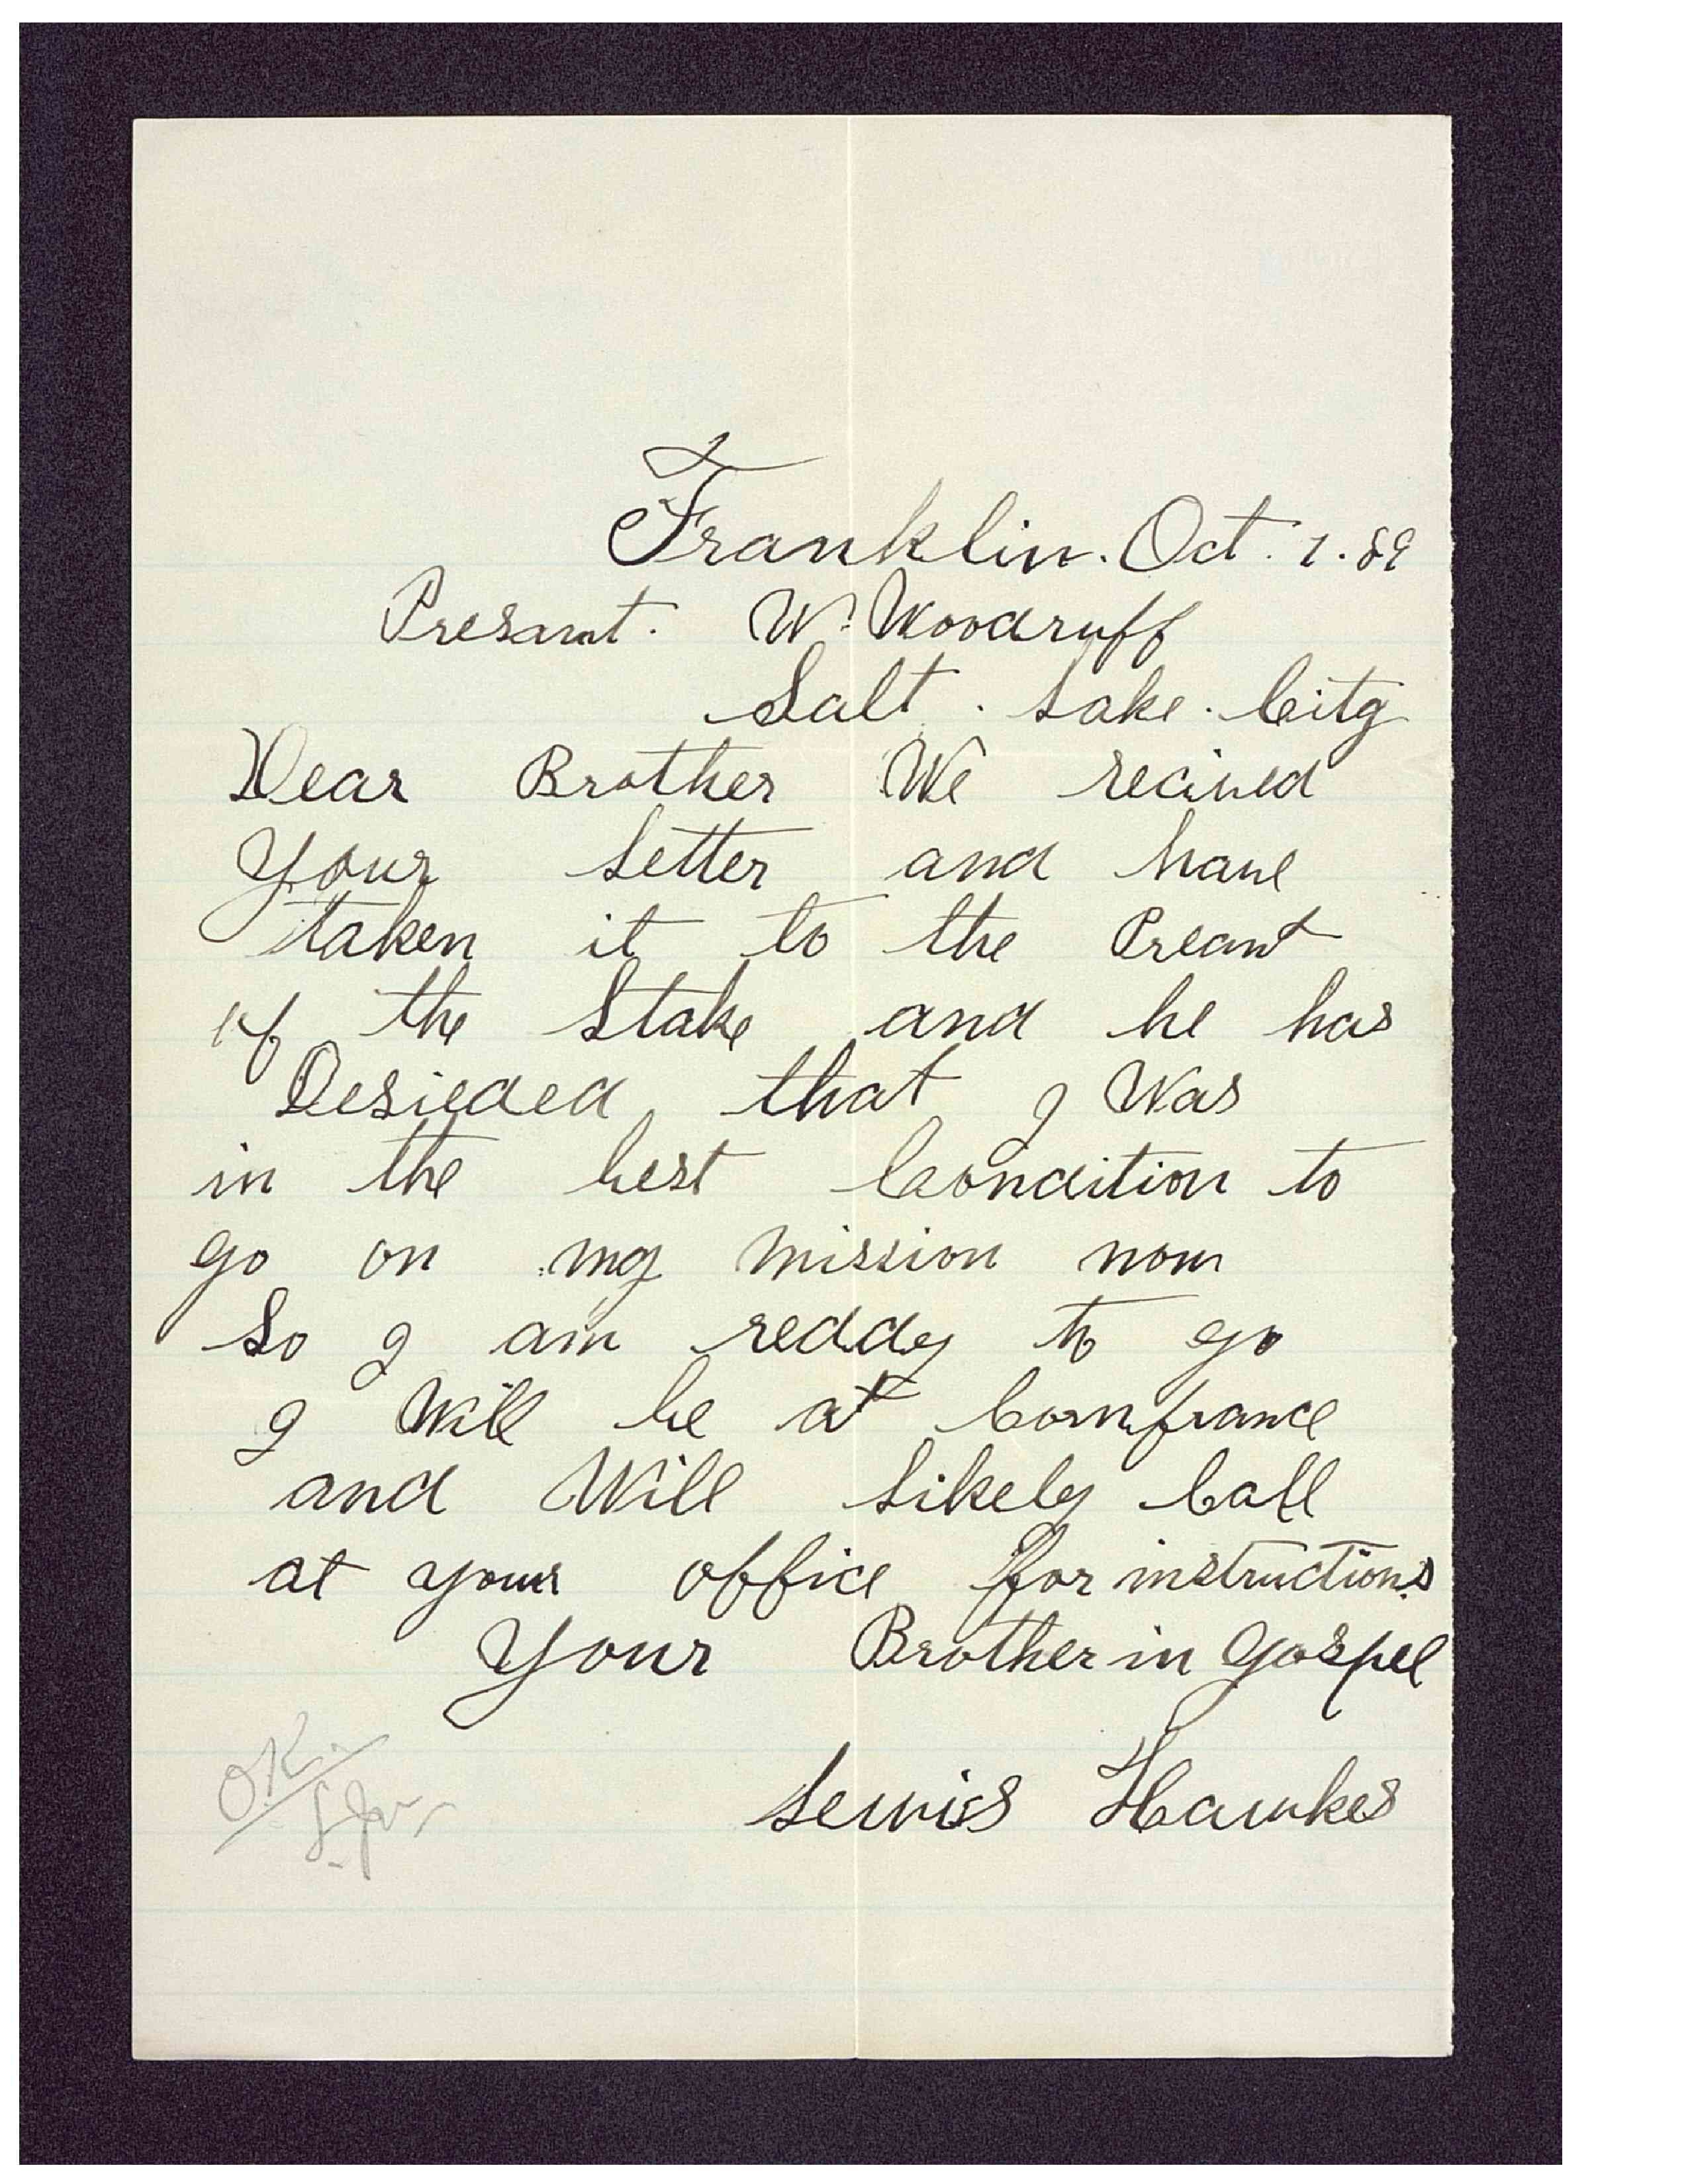 Franklin. Oct. 1. 89
Presant. W. Woodruff
Salt. Lake. City
Dear Brother We recived
Your Letter and have
taken it to the Preant
of the Stake and he has
Desieded that I Was
in the best Condition to
go on my mission now
So I am reddy to go
I Will be at Cornfrance
and Will Likely Call
at your office for instructions
Your Brother in gospel
Lewis Hawkes
O.K.